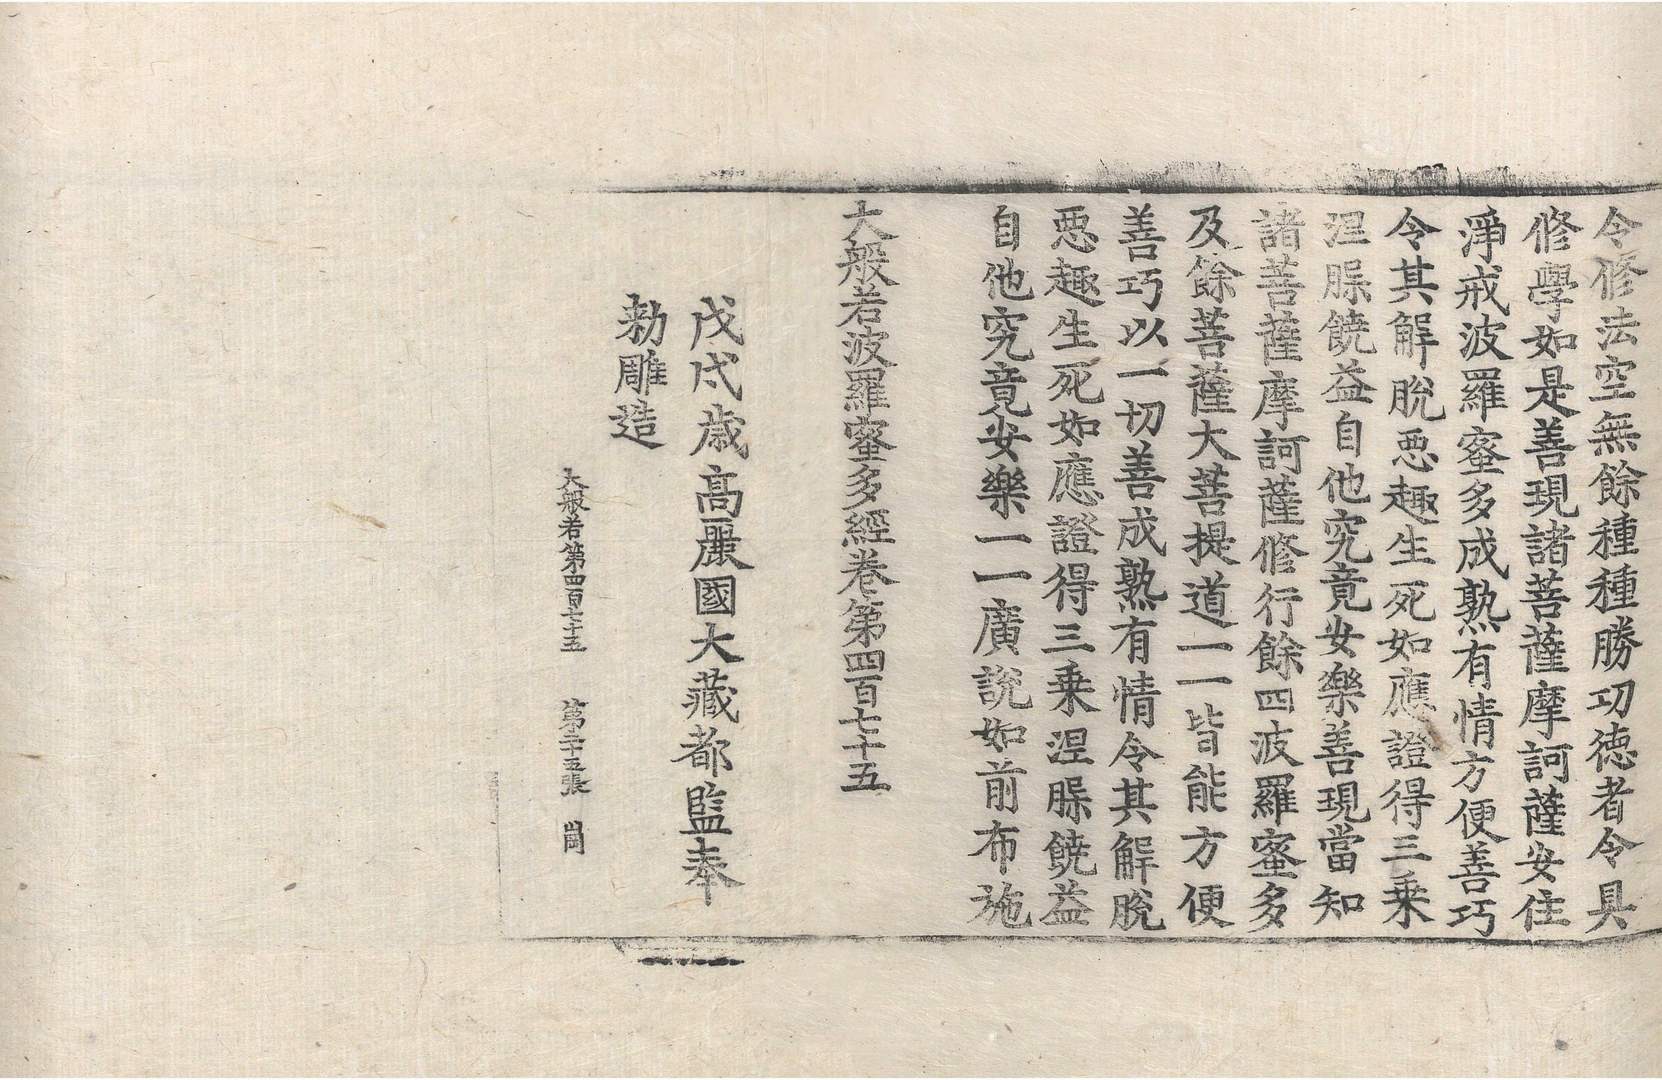 令修法空無餘種種勝功德者令具
修學如是善現諸菩薩摩訶薩安住
淨戒波羅蜜多成熟有情方便善巧
令其解脫惡趣生死如應證得三乘
涅槃饒益自他究竟安樂善現當知
諸菩薩摩訶薩修行餘四波羅蜜多
及餘菩薩大菩提道一一皆能方便
善巧以一切善成熟有情令其解脫
惡趣生死如應證得三乘涅槃饒益
自他究竟安樂一一廣說如前布施
大般若波羅蜜多經卷第四百七十五
戊戌歲高麗國大藏都監奉
勅雕造
大般若第四百七十五 第二十五張 崗